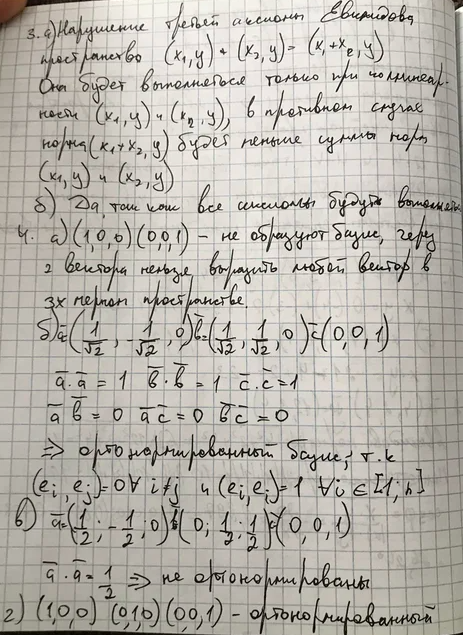 3. а) Нарушение третьей аксиомы Евклидова
пространство (x₁, y) + (x₂, y) = (x₁ + x₂, y)
Она будет выполняться только при коллинеар-
ности (x₁, y) и (x₂, y), в противном случае
норма (x₁ + x₂, y) будет меньше суммы норм
(x₁, y) и (x₂, y)
б) Да, так как все аксиомы будут выполнять
4. а) (1,0,0) (0,0,1) – не образуют базис, через
2 вектора нельзя выразить любой вектор в
3х мерном пространстве.
б) ā(1/√2, -1/√2, 0) b̄=(1/√2, 1/√2, 0) c̄(0,0,1)
ā·ā = 1 b̄·b̄ = 1 c̄·c̄ = 1
ā b̄ = 0 ā c̄ = 0 b̄ c̄ = 0
⇒ ортонормированный базис, т.к
(eᵢ, eⱼ)=0 ∀ i≠j и (eᵢ, eᵢ)=1 ∀i ∈ [1; n]
в) ā=(1/2; -1/2; 0) b̄(0; 1/2; 1/2) c̄(0 0, 1)
ā·ā = 1/2 ⇒ не ортонормированы
г) (1,0,0) (0,1,0) (0,0,1) – ортонормированный